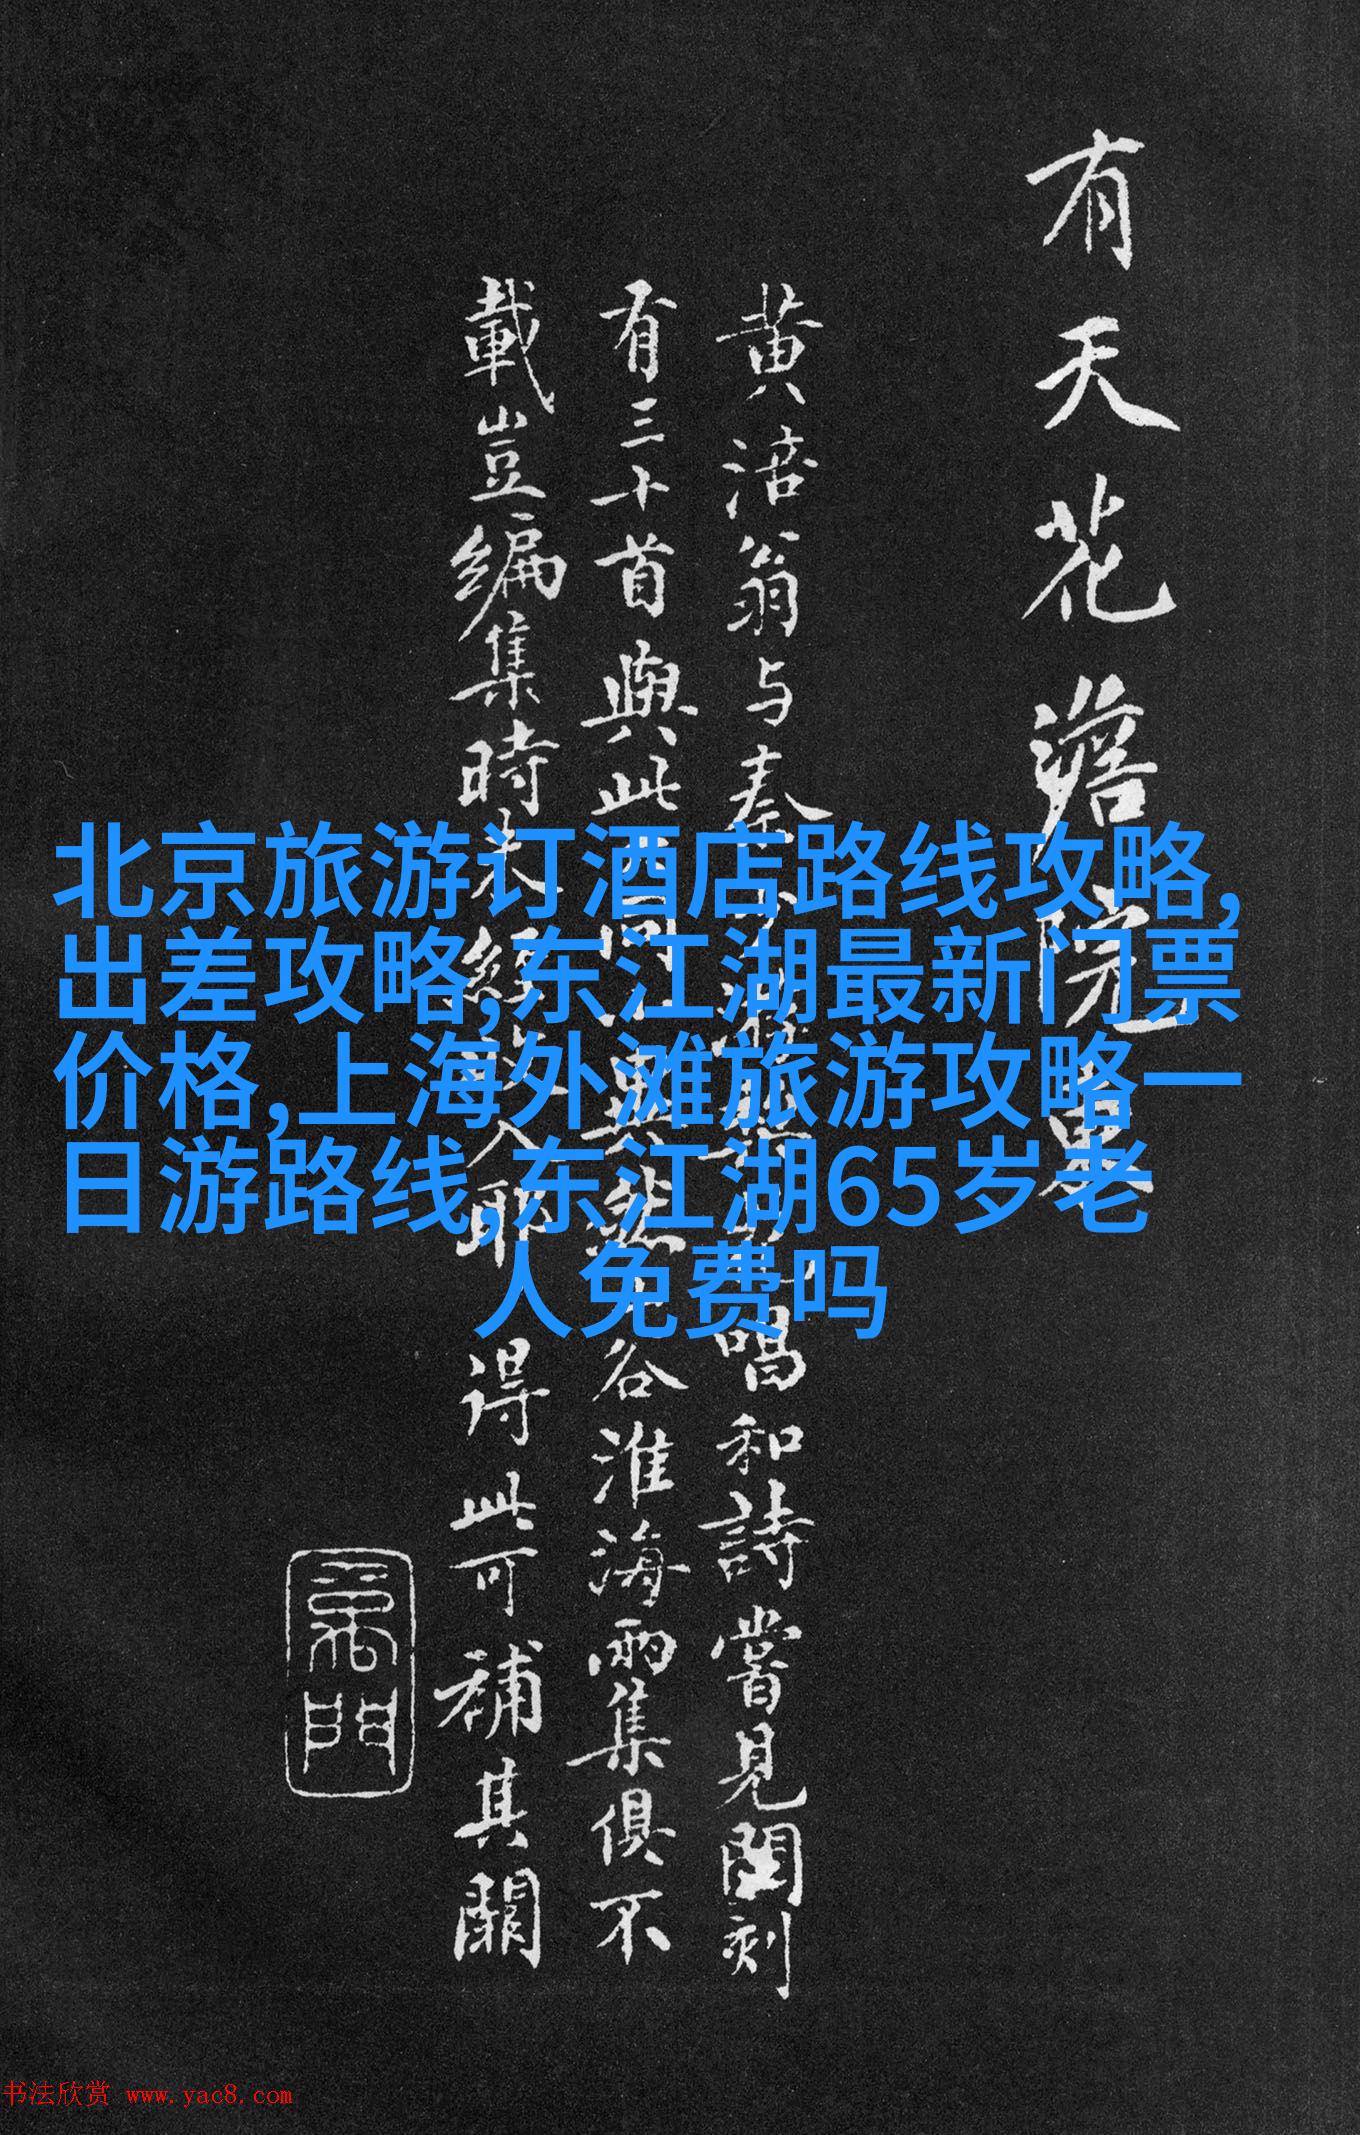 北京旅游订酒店路线攻略,
出差攻略,东江湖最新门票
价格,上海外滩旅游攻略一
日游路线,东江湖65岁老
人免费吗
有天花澹院裏
黄涪翁与秦少游
唱和詩嘗見閣刻
有三十首與此
谷淮海兩集俱不
載豈編集時未經
耶得此可補其闕
書法欣赏 www.yac8.com